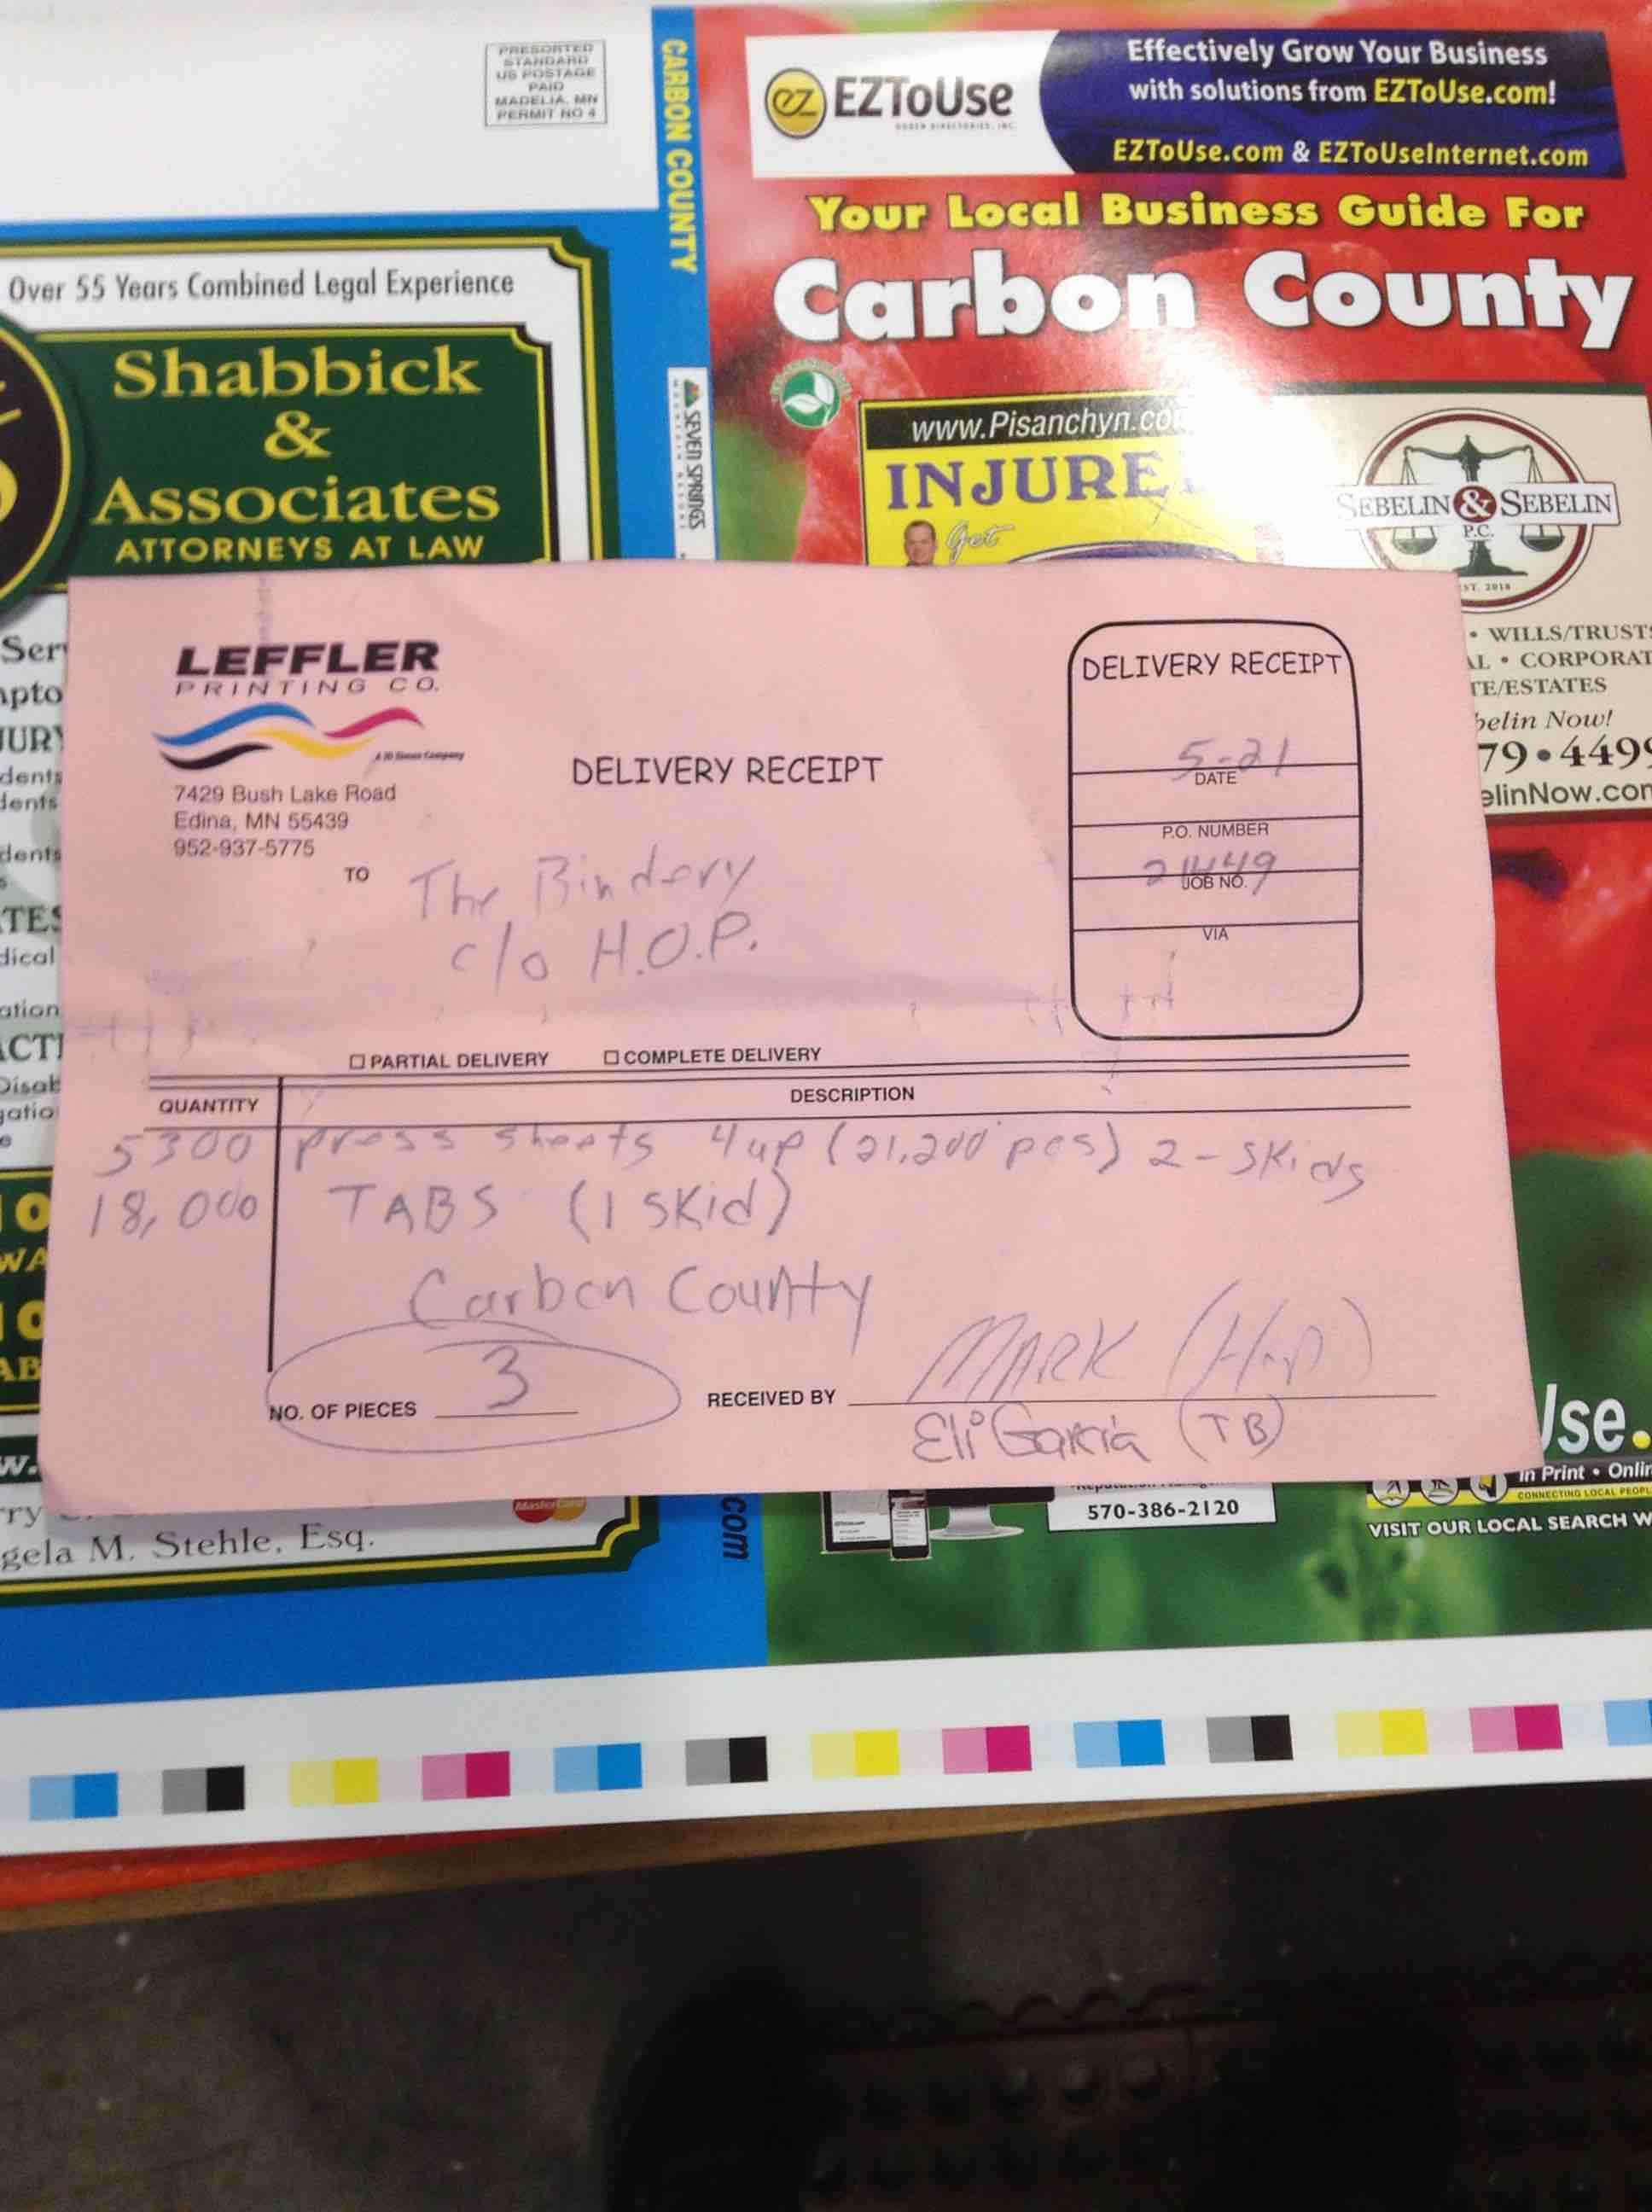 PRESORTED
STANDARD
US POSTAGE
PAID
MADELIA, MN
PERMIT NO 4
CARBON COUNTY
SEVEN SPRINGS
MOUNTAIN RESORT
.com
Over 55 Years Combined Legal Experience
Shabbick
&
Associates
ATTORNEYS AT LAW
EZ EZToUse
OGDEN DIRECTORIES, INC.
Effectively Grow Your Business
with solutions from EZToUse.com!
EZToUse.com & EZToUseInternet.com
Your Local Business Guide For
Carbon County
www.Pisanchyn.co
INJURE
Get
SEBELIN & SEBELIN
P.C.
EST. 2018
• WILLS/TRUST
AL • CORPORAT
TE/ESTATES
belin Now!
79•449
elinNow.com
LEFFLER
PRINTING CO.
7429 Bush Lake Road
Edina, MN 55439
952-937-5775
DELIVERY RECEIPT
DELIVERY RECEIPT
5-21
DATE
P.O. NUMBER
21449
JOB NO.
VIA
TO The Bindery
c/o H.O.P.
PARTIAL DELIVERY COMPLETE DELIVERY
QUANTITY DESCRIPTION
5300 press sheets 4up (21,200 pcs) 2-Skids
18,000 TABS (1 Skid)
Carbon County
NO. OF PIECES 3
RECEIVED BY MARK (HOP)
Eli Garcia (TB)
gela M. Stehle, Esq.
MasterCard
570-386-2120
Use.
In Print • Onlin
CONNECTING LOCAL PEOPL
VISIT OUR LOCAL SEARCH W